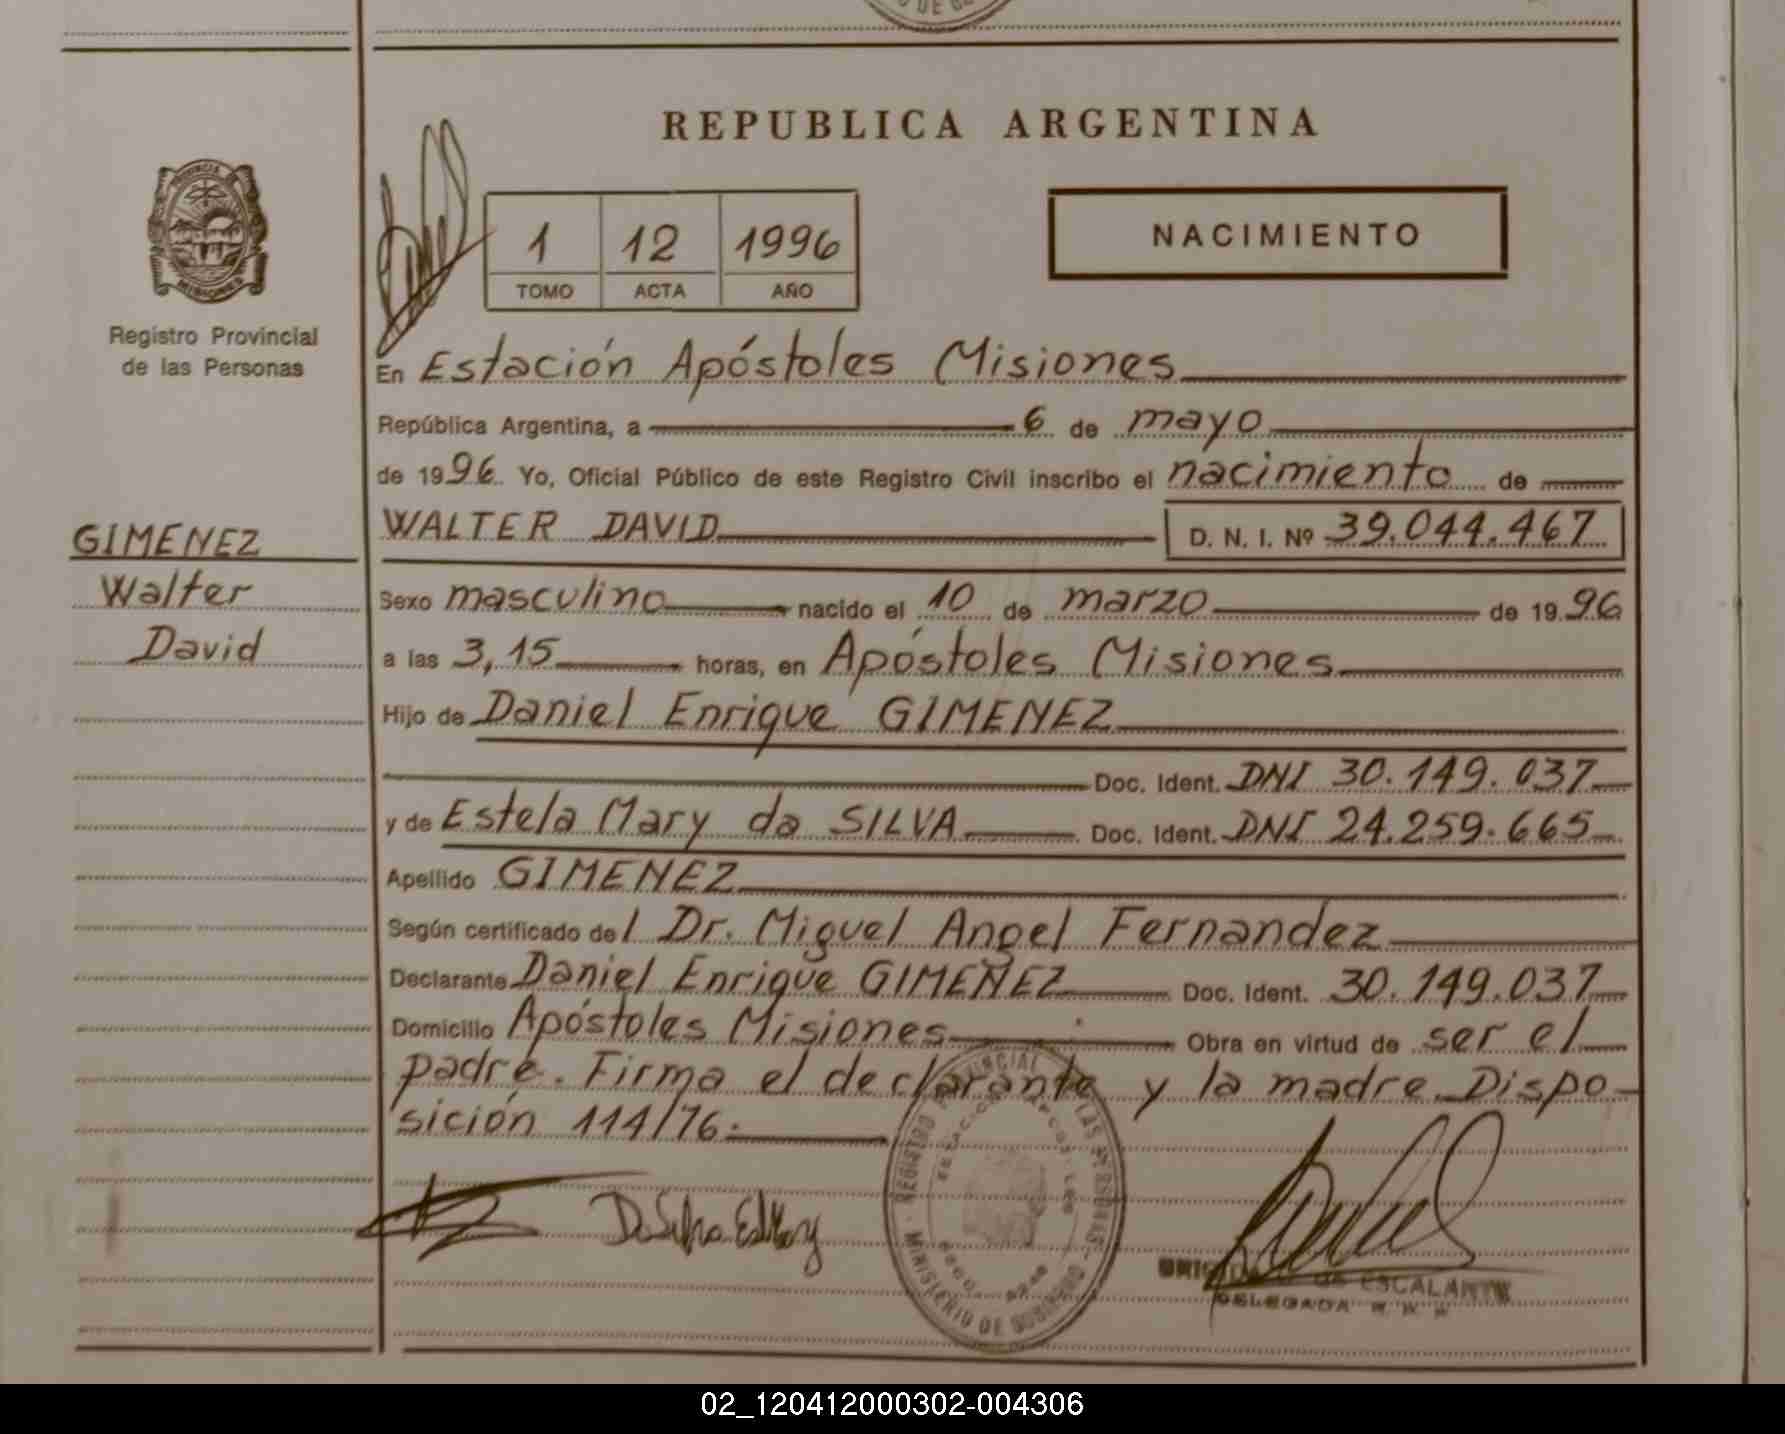 REPUBLICA ARGENTINA
PROVINCIA DE
MISIONES
Registro Provincial
de las Personas
1 12 1996
TOMO ACTA AÑO
NACIMIENTO
En Estación Apóstoles Misiones
República Argentina, a 6 de mayo
de 1996 Yo, Oficial Público de este Registro Civil inscribo el nacimiento de
WALTER DAVID D. N. I. Nº 39.044.467
GIMENEZ
Walter
David
Sexo masculino nacido el 10 de marzo de 1996
a las 3,15 horas, en Apóstoles Misiones
Hijo de Daniel Enrique GIMENEZ
Doc. Ident. DNI 30.149.037
y de Estela Mary da SILVA Doc. Ident. DNI 24.259.665
Apellido GIMENEZ
Según certificado del Dr. Miguel Angel Fernandez
Declarante Daniel Enrique GIMENEZ Doc. Ident. 30.149.037
Domicilio Apóstoles Misiones Obra en virtud de ser el
padre. Firma el declarante y la madre. Dispo-
sición 114/76.
REGISTRO PROVINCIAL DE LAS PERSONAS
MINISTERIO DE GOBIERNO
ESTACION APOSTOLES
DE ESCALANTE
DELEGADA
02_120412000302-004306